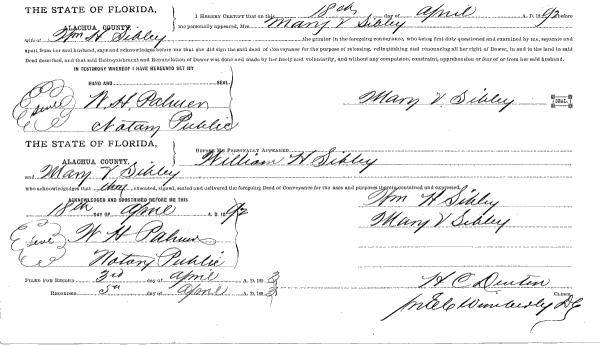 THE STATE OF FLORIDA,
ALACHUA COUNTY.
I HEREBY CERTIFY that on this 18th day of April A. D. 1892 before
me personally appeared, Mrs Mary V Sibley
wife of Wm H Sibley the grantor in the foregoing conveyance, who being first duly questioned and examined by me, separate and
apart from her said husband, says and acknowledges before me that she did sign the said deed of Conveyance for the purpose of releasing, relinquishing and renouncing all her right of Dower, in and to the land in said
Deed described, and that said Relinquishment and Renunciation of Dower was done and made by her freely and voluntarily, and without any compulsion, constraint, apprehension or fear of or from her said husband.
IN TESTIMONY WHEREOF I HAVE HEREUNTO SET MY
HAND AND SEAL.
Seal W. H. Palmer
Notary Public
Mary V. Sibley SEAL.
THE STATE OF FLORIDA,
ALACHUA COUNTY.
BEFORE ME PERSONALLY APPEARED William H Sibley
and Mary V Sibley
who acknowledges that they executed, signed, sealed and delivered the foregoing Deed of Conveyance for the uses and purposes therein contained and expressed.
ACKNOWLEDGED AND SUBSCRIBED BEFORE ME THIS
18th DAY OF April A. D. 1892
Wm H Sibley
Mary V Sibley
Seal W H Palmer
Notary Public
FILED FOR RECORD 3rd day of April A. D. 1893
RECORDED 5th day of April A. D. 1893
H C Denton CLERK.
Wimberly D C